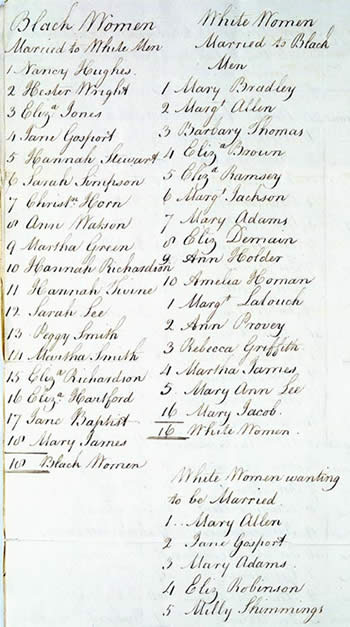 Black Women
Married to White Men
1 Nancy Hughes.
2 Hester Wright
3 Eliza Jones
4 Jane Gosport
5 Hannah Stewart
6 Sarah Simpson
7 Christn Horn
8 Ann Watson
9 Martha Green
10 Hannah Richardson
11 Hannah
12 Sarah Lee
13 Peggy Smith
14 Martha Smith
15 Eliza Richardson
16 Eliza Hartford
17 Jane Baptist
18 Mary James
18 Black Women
White Women
Married to Black
Men
1 Mary Bradley
2 Margt Allen
3 Barbary Thomas
4 Eliza Brown
5 Eliza Ramsey
6 Margt Jackson
7 Mary Adams
8 Eliz Demaun
9 Ann Holder
10 Amelia Homan
1 Margt Lalouch
2 Ann Provey
3 Rebecca Griffith
4 Martha James
5. Mary Ann Lee
16 Mary Jacob.
16 White Women.
White Women wanting
to be Married.
1.. Mary Allen
2 Jane Gosport
3 Mary Adams.
4 Eliz Robinson
5 Milly Shimmings